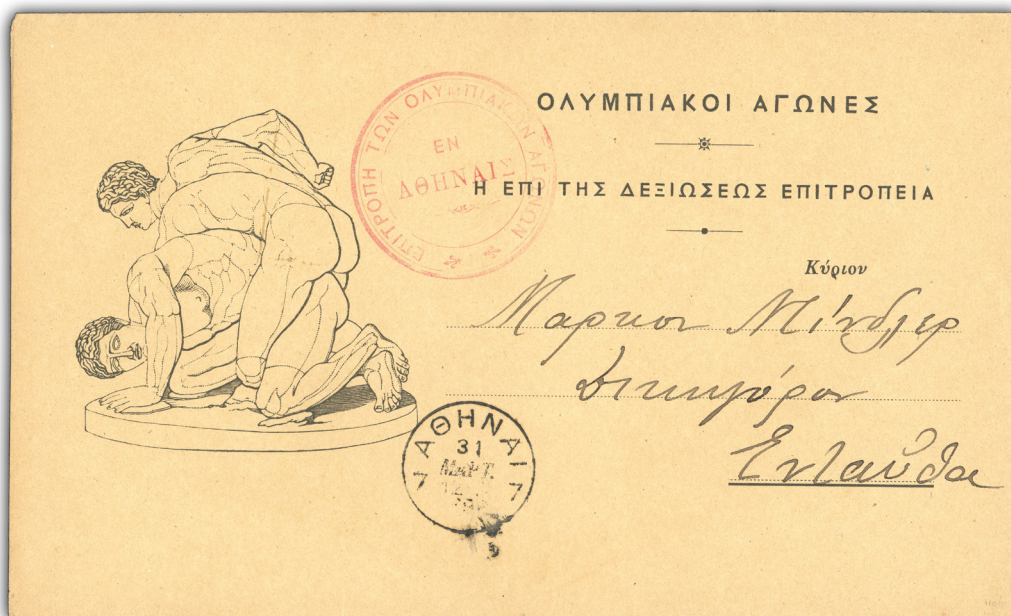 ΟΛΥΜΠΙΑΚΟΙ ΑΓΩΝΕΣ
Η ΕΠΙ ΤΗΣ ΔΕΞΙΩΣΕΩΣ ΕΠΙΤΡΟΠΕΙΑ
ΕΠΙΤΡΟΠΗ ΤΩΝ ΟΛΥΜΠΙΑΚΩΝ ΑΓΩΝΩΝ
ΕΝ
ΑΘΗΝΑΙΣ
Κύριον
Μαρκον Μίνδλερ
Δικηγόρον
Ενταύθα
ΑΘΗΝΑΙ
31
ΜΑΡΤ.
7 7